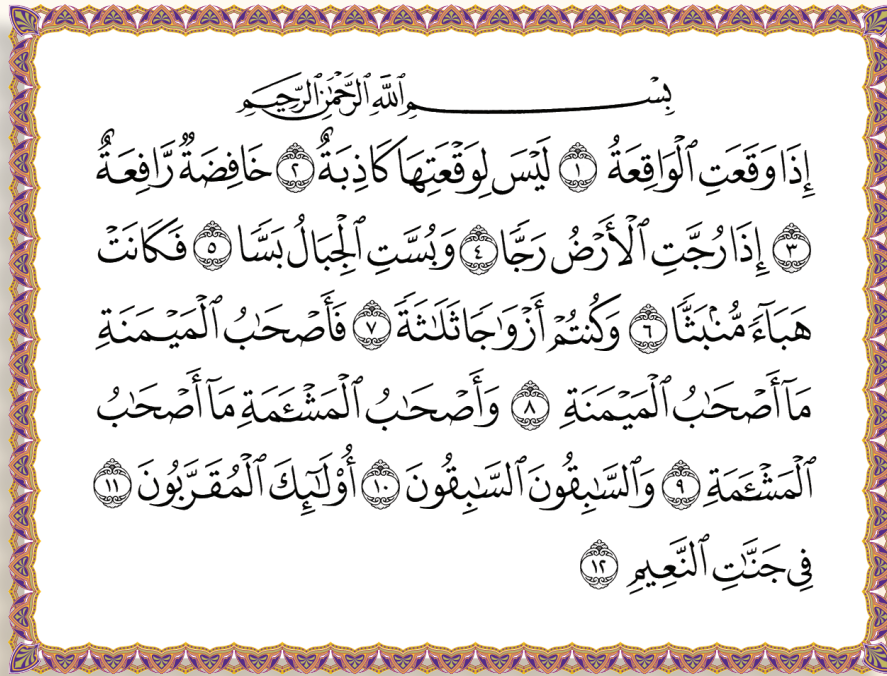 بِسْمِ ٱللَّهِ ٱلرَّحْمَٰنِ ٱلرَّحِيمِ
إِذَا وَقَعَتِ ٱلْوَاقِعَةُ ١ لَيْسَ لِوَقْعَتِهَا كَاذِبَةٌ ٢ خَافِضَةٌ رَّافِعَةٌ
٣ إِذَا رُجَّتِ ٱلْأَرْضُ رَجًّا ٤ وَبُسَّتِ ٱلْجِبَالُ بَسًّا ٥ فَكَانَتْ
هَبَآءً مُّنۢبَثًّا ٦ وَكُنتُمْ أَزْوَٰجًا ثَلَٰثَةً ٧ فَأَصْحَٰبُ ٱلْمَيْمَنَةِ
مَآ أَصْحَٰبُ ٱلْمَيْمَنَةِ ٨ وَأَصْحَٰبُ ٱلْمَشْـَٔمَةِ مَآ أَصْحَٰبُ
ٱلْمَشْـَٔمَةِ ٩ وَٱلسَّٰبِقُونَ ٱلسَّٰبِقُونَ ١٠ أُو۟لَٰٓئِكَ ٱلْمُقَرَّبُونَ ١١
فِى جَنَّٰتِ ٱلنَّعِيمِ ١٢